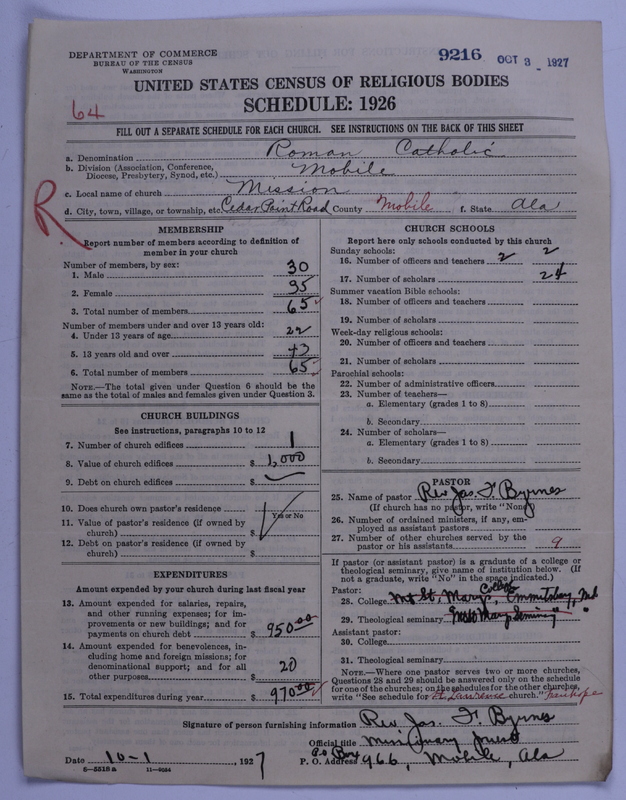 DEPARTMENT OF COMMERCE
BUREAU OF THE CENSUS
WASHINGTON
9216 OCT 3 - 1927
UNITED STATES CENSUS OF RELIGIOUS BODIES
SCHEDULE: 1926
64
FILL OUT A SEPARATE SCHEDULE FOR EACH CHURCH. SEE INSTRUCTIONS ON THE BACK OF THIS SHEET
a. Denomination Roman Catholic
b. Division (Association, Conference, Diocese, Presbytery, Synod, etc.) Mobile
c. Local name of church Mission
d. City, town, village, or township, etc. Cedar Point Road County Mobile f. State Ala
R
MEMBERSHIP
Report number of members according to definition of
member in your church
Number of members, by sex:
1. Male 30
2. Female 35
3. Total number of members 65
Number of members under and over 13 years old:
4. Under 13 years of age 22
5. 13 years old and over 43
6. Total number of members 65
NOTE.—The total given under Question 6 should be the
same as the total of males and females given under Question 3.
CHURCH BUILDINGS
See instructions, paragraphs 10 to 12
7. Number of church edifices 1
8. Value of church edifices $ 1,000
9. Debt on church edifices $
10. Does church own pastor's residence
Yes or No
11. Value of pastor's residence (if owned by
church) $
12. Debt on pastor's residence (if owned by
church) $
EXPENDITURES
Amount expended by your church during last fiscal year
13. Amount expended for salaries, repairs,
and other running expenses; for im-
provements or new buildings; and for
payments on church debt $ 950.00
14. Amount expended for benevolences, in-
cluding home and foreign missions; for
denominational support; and for all
other purposes $ 20
15. Total expenditures during year $ 970.00
CHURCH SCHOOLS
Report here only schools conducted by this church
Sunday schools:
16. Number of officers and teachers 2 2
17. Number of scholars 24
Summer vacation Bible schools:
18. Number of officers and teachers
19. Number of scholars
Week-day religious schools:
20. Number of officers and teachers
21. Number of scholars
Parochial schools:
22. Number of administrative officers
23. Number of teachers—
a. Elementary (grades 1 to 8)
b. Secondary
24. Number of scholars—
a. Elementary (grades 1 to 8)
b. Secondary
PASTOR
25. Name of pastor Rev Jas. F. Byrnes
(If church has no pastor, write "None")
26. Number of ordained ministers, if any, em-
ployed as assistant pastors
27. Number of other churches served by the
pastor or his assistants 9
If pastor (or assistant pastor) is a graduate of a college or
theological seminary, give name of institution below. (If
not a graduate, write "No" in the space indicated.)
Pastor:
28. College Mt St. Marys College, Emmitsburg, Md.
29. Theological seminary Mt St Marys Seminary "
Assistant pastor:
30. College
31. Theological seminary
NOTE.—Where one pastor serves two or more churches,
Questions 28 and 29 should be answered only on the schedule
for one of the churches; on the schedules for the other churches,
write "See schedule for St. Lawrence church." Fairhope
Signature of person furnishing information Rev. Jas. F. Byrnes
Official title Missionary Priest
Date 10-1, 1927 P. O. Address P.O. Box 966, Mobile, Ala
6—5518a 11—9094